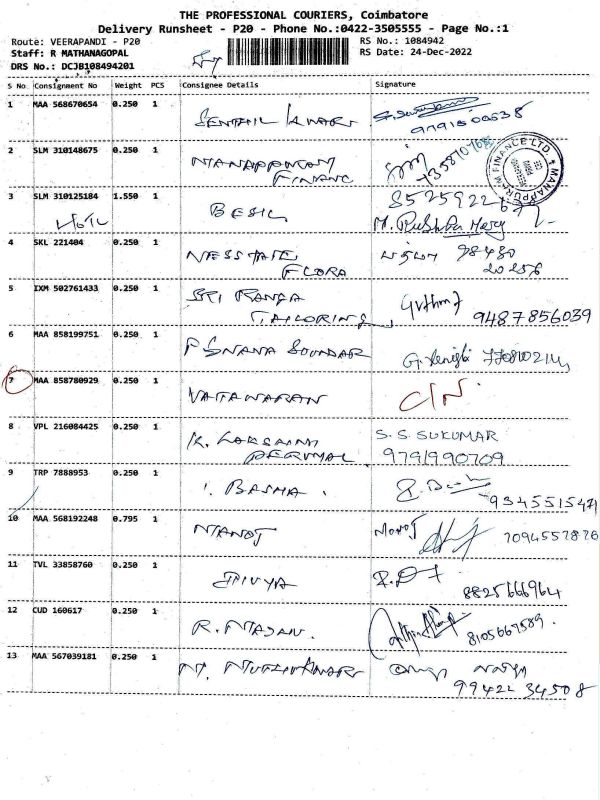 THE PROFESSIONAL COURIERS, Coimbatore
Delivery Runsheet - P20 - Phone No.:0422-3505555 - Page No.:1
Route: VEERAPANDI - P20
RS No.: 1084942
Staff: R MATHANAGOPAL
RS Date: 24-Dec-2022
DRS No.: DCJB108494201
S No Consignment No Weight PCS Consignee Details Signature
1 MAA 568670654 0.250 1 SENTHIL KUMAR
9791500638
2 SLM 310148675 0.250 1 MANAPPURAM
FINANC
MANAPPURAM FINANCE LTD.
3 SLM 310125184 1.550 1 BESIL
HOTL M. Pushpa Mary
4 SKL 221404 0.250 1 NESSTATE 98430
FLORA 20256
5 IXM 502761433 0.250 1 SRI RANGA
TAILORING 9487856039
6 MAA 858199751 0.250 1 P GNANA SOUNDAR
7 MAA 858780929 0.250 1 C/N.
8 VPL 216084425 0.250 1 K. LAKSHMI S.S. SUKUMAR
PERUMAL 9791990709
9 TRP 7888953 0.250 1 BASHA 9345515471
10 MAA 568192248 0.795 1 MANOJ Manoj 7094557876
11 TVL 33858760 0.250 1 DIVYA
8825666964
12 CUD 160617 0.250 1 R. MAJAN. 8105667589.
13 MAA 567039181 0.250 1 M. MUTHUKUMAR
99422 34508